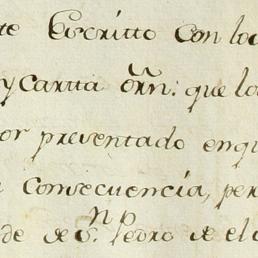 te Escritto con los
y cartta orñ: que lo
or presentado enqu
consecuencia, per
de de S.n Pedro de el